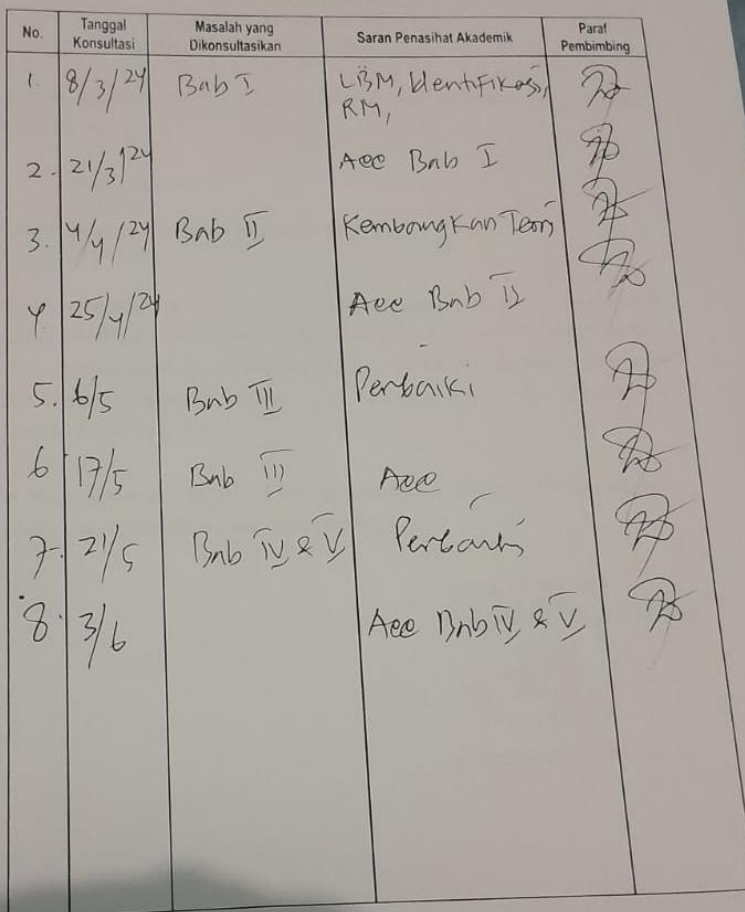 No. Tanggal Konsultasi Masalah yang Dikonsultasikan Saran Penasihat Akademik Paraf Pembimbing
1. 8/3/24 Bab I LBM, Identifikasi,
RM,
2. 21/3/24 Acc Bab I
3. 4/4/24 Bab II Kembangkan Teori
4 25/4/24 Acc Bab II
5. 6/5 Bab III Perbaiki
6 17/5 Bab III Acc
7. 21/5 Bab IV & V Perbaiki
8. 3/6 Acc Bab IV & V